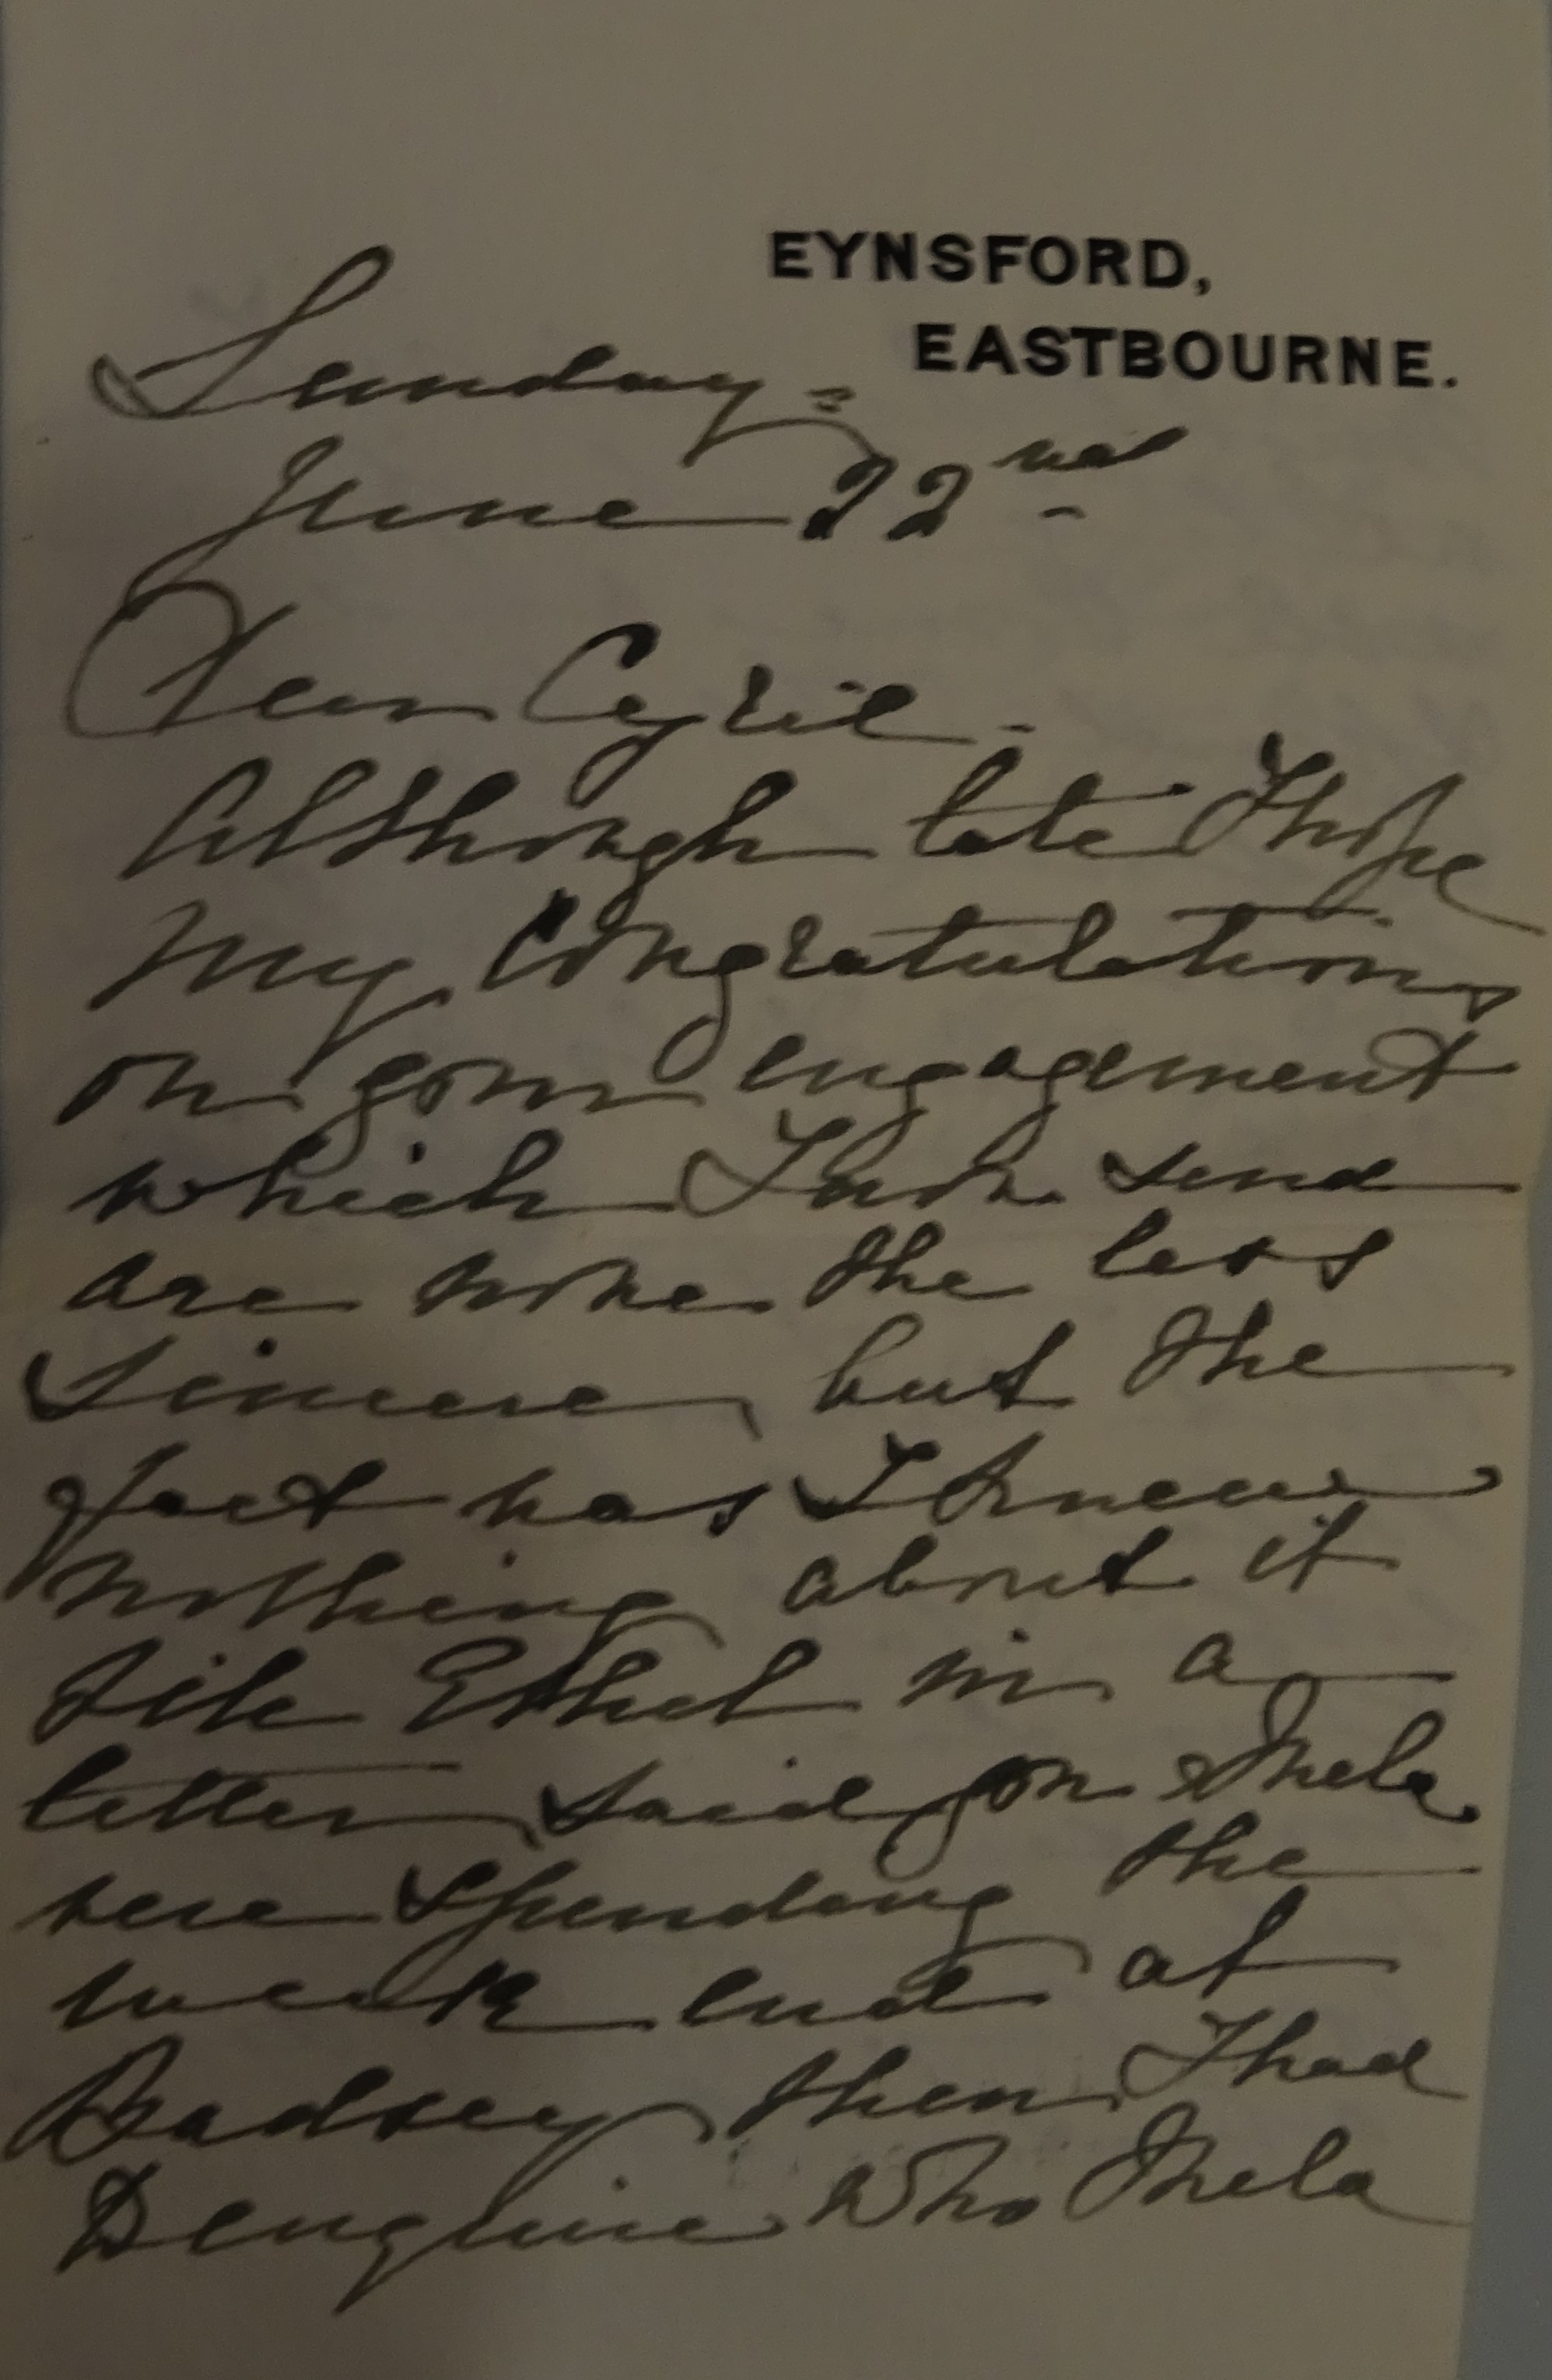 EYNSFORD,
EASTBOURNE.
Sunday =
June 22nd
Dear Cyril -
Although late I hope
my Congratulations
on your engagement
which I now send
are none the less
Sincere, but the
fact was I knew
nothing about it
till Ethel in a
letter, said you &
were spending the
week end at
Badsey then I had
to enquire who